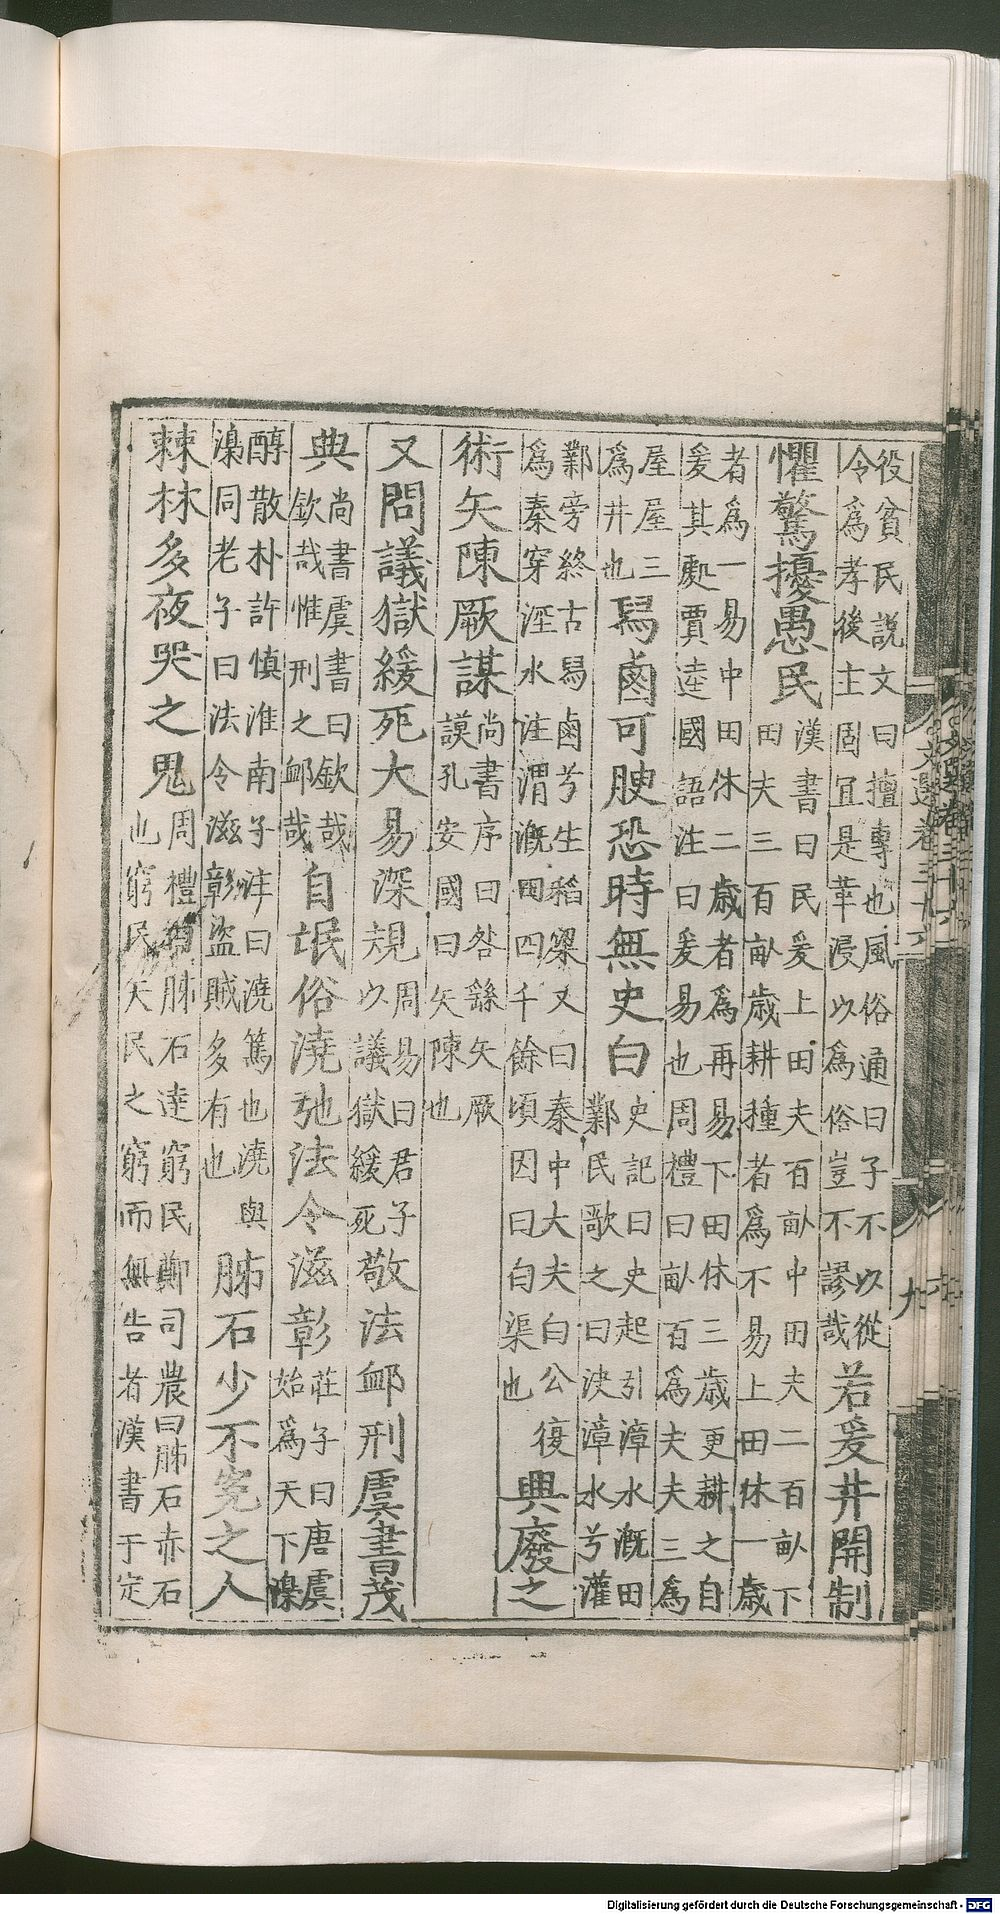 役貧民說文曰擅專也風俗通曰子不以從
令爲孝後主固宜是革浸以爲俗豈不謬哉
若爰井開制
懼驚擾愚民
漢書曰民爰上田夫百畝中田夫二百畝下
田夫三百畝歲耕種者爲不易上田休一歲
者爲一易中田休二歲者爲再易下田休三歲更耕之自
爰其處賈逵國語注曰爰易也周禮曰畝百爲夫夫三爲
屋屋三
爲井也
舄鹵可腴恐時無史白
史記曰史起引漳水溉田
鄴民歌之曰決漳水兮灌
鄴旁終古舄鹵兮生稻粱又曰秦中大夫白公
爲秦穿涇水注渭溉田四千餘頃因曰白渠也
復興廢之
術矢陳厥謀
尚書序曰咎繇矢厥
謨孔安國曰矢陳也
又問議獄緩死大易深規
周易曰君子
以議獄緩死
敬法卹刑虞書茂
典
尚書虞書曰欽哉
欽哉惟刑之卹哉
自氓俗澆弛法令滋彰
莊子曰唐虞
始爲天下澡
醇散朴許慎淮南子注曰澆篤也澆與
澡同老子曰法令滋彰盜賊多有也
肺石少不冤之人
棘林多夜哭之鬼
周禮肺石達窮民鄭司農曰肺石赤石
也窮民天民之窮而無告者漢書于定
文選卷三十六
九
Digitalisierung gefördert durch die Deutsche Forschungsgemeinschaft - DFG